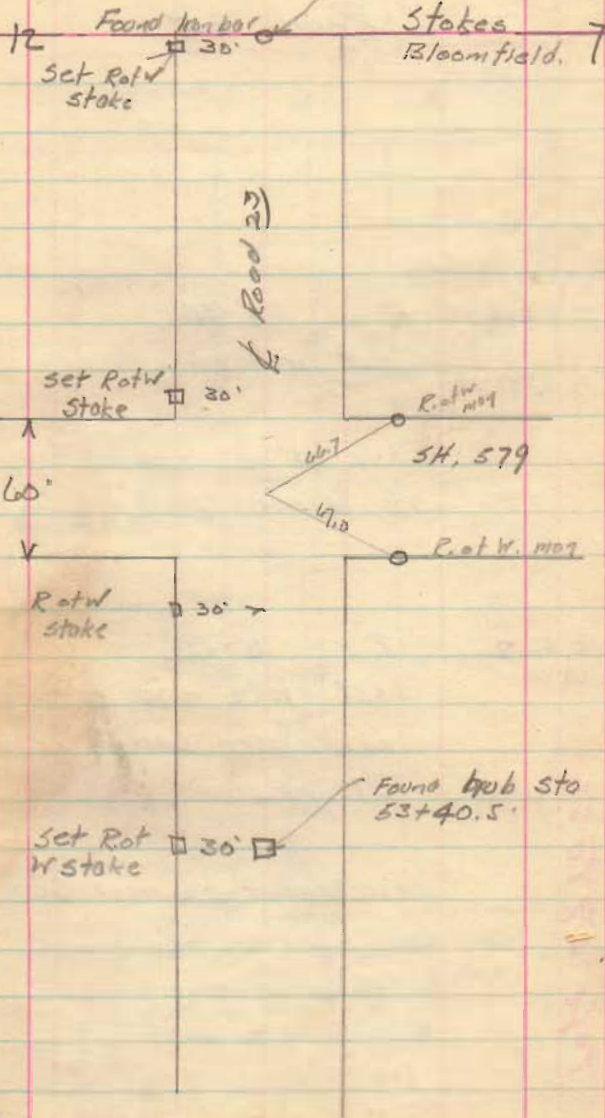 Found Iron bar
Stokes
12
30'
Bloomfield.
7
Set RofW
stake
℄ Road 23
set RofW
Stake
30'
R.ofW
mon
66.7
SH, 579
60'
67.0
R.of W. mon
RofW
stake
30'
Found hub sta
53+40.5'
Set Rof
W stake
30'